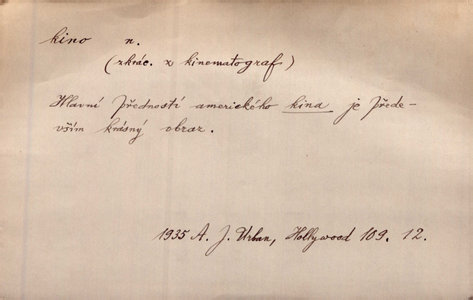 kino n.
(zkrác. z kinematograf)
Hlavní předností amerického kina je přede-
vším krásný obraz.
1935 A. J. Urban, Hollywood 109. 12.